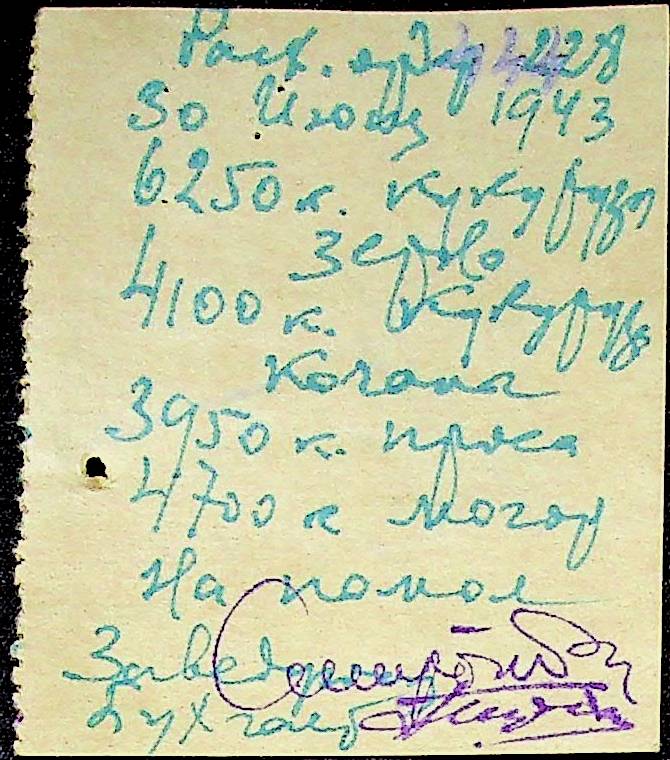 30 Июня 1943
6250 к. кукуруза
зерно
4100 к. кукуруза
Кочана
3950 к. проса
4700 к могар
На помол
Заведующ
Бухгалт